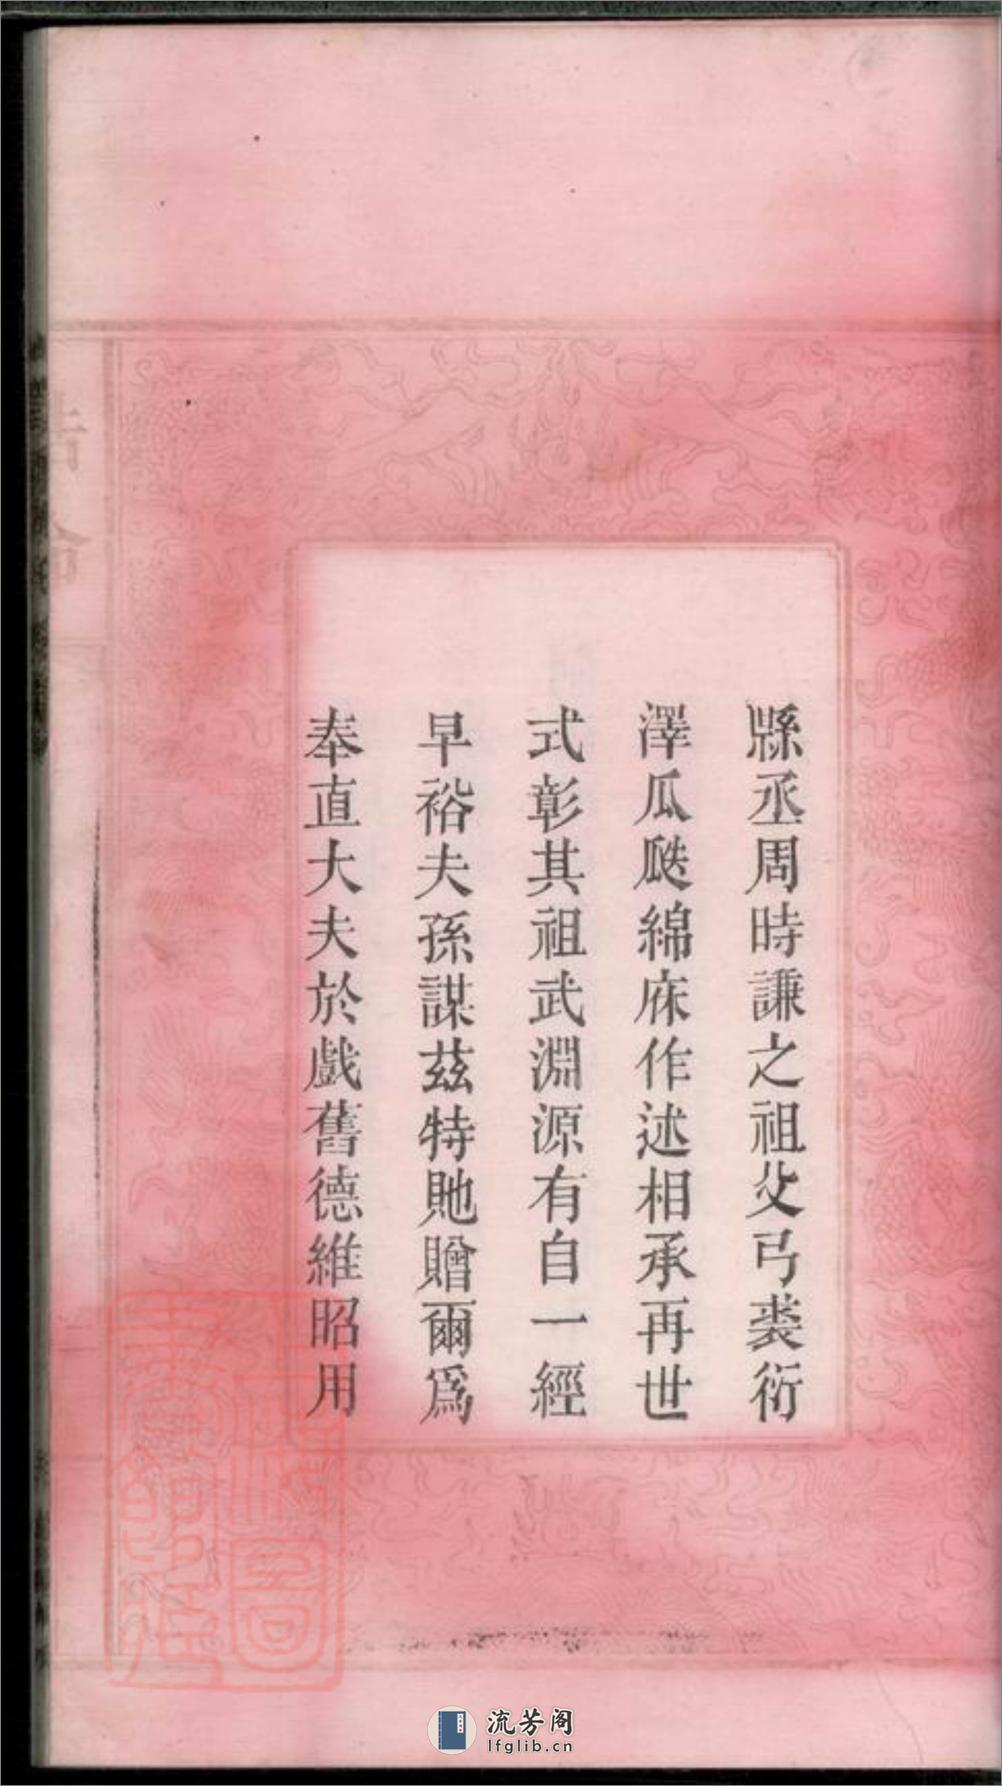 縣丞周時謙之祖父弓裘衍
澤瓜瓞綿庥作述相承再世
式彰其祖武淵源有自一經
早裕夫孫謀茲特貤贈爾爲
奉直大夫於戲舊德維昭用
誥命
流芳阁
lfglib.cn